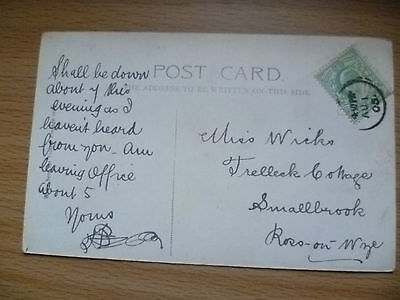 POST CARD.
THE ADDRESS TO BE WRITTEN ON THIS SIDE.
Shall be down
about 7 this
evening as I
haven't heard
from you. Am
leaving Office
about 5
Yours
Miss Wicks
Trelleck Cottage
Smallbrook
Ross-on-Wye